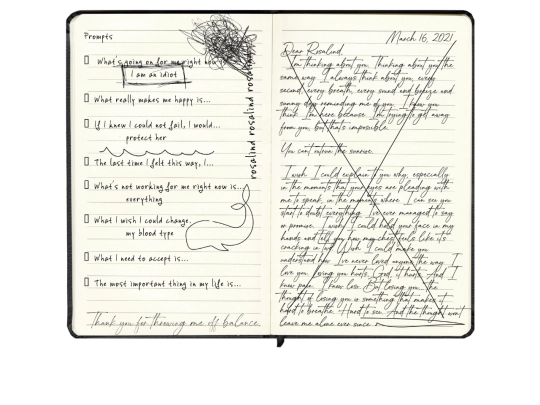 Prompts
What's going on for me right now is
I am an idiot
What really makes me happy is...
If I knew I could not fail, I would...
protect her
The last time I felt this way, I...
What's not working for me right now is...
everything
What I wish I could change.
my blood type
What I need to accept is...
The most important thing in my life is...
Thank you for throwing me off balance.
rosalind rosalind rosalind
March 16, 2021
Dear Rosalind,
I'm thinking about you. Thinking about you the
same way I always think about you, every
second, every breath, every sound and breeze and
sunny day reminding me of you. I know you
think I'm here because I'm trying to get away
from you, but that's impossible.
You can't outrun the sunrise.
I wish I could explain to you why, especially
in the moments that your eyes are pleading with
me to speak, in the moments where I can see you
start to doubt everything I've ever managed to say
or promise. I wish I could hold your face in my
hands and tell you how my chest feels like it's
cracking in two. Wish I could make you
understand how I've never loved anyone the way I
love you. Losing you hurts. God, it hurts. And I
know pain. I know loss. But losing you, the
thought of losing you is something that makes it
hard to breathe. Hard to see. And the thought won't
leave me alone ever since